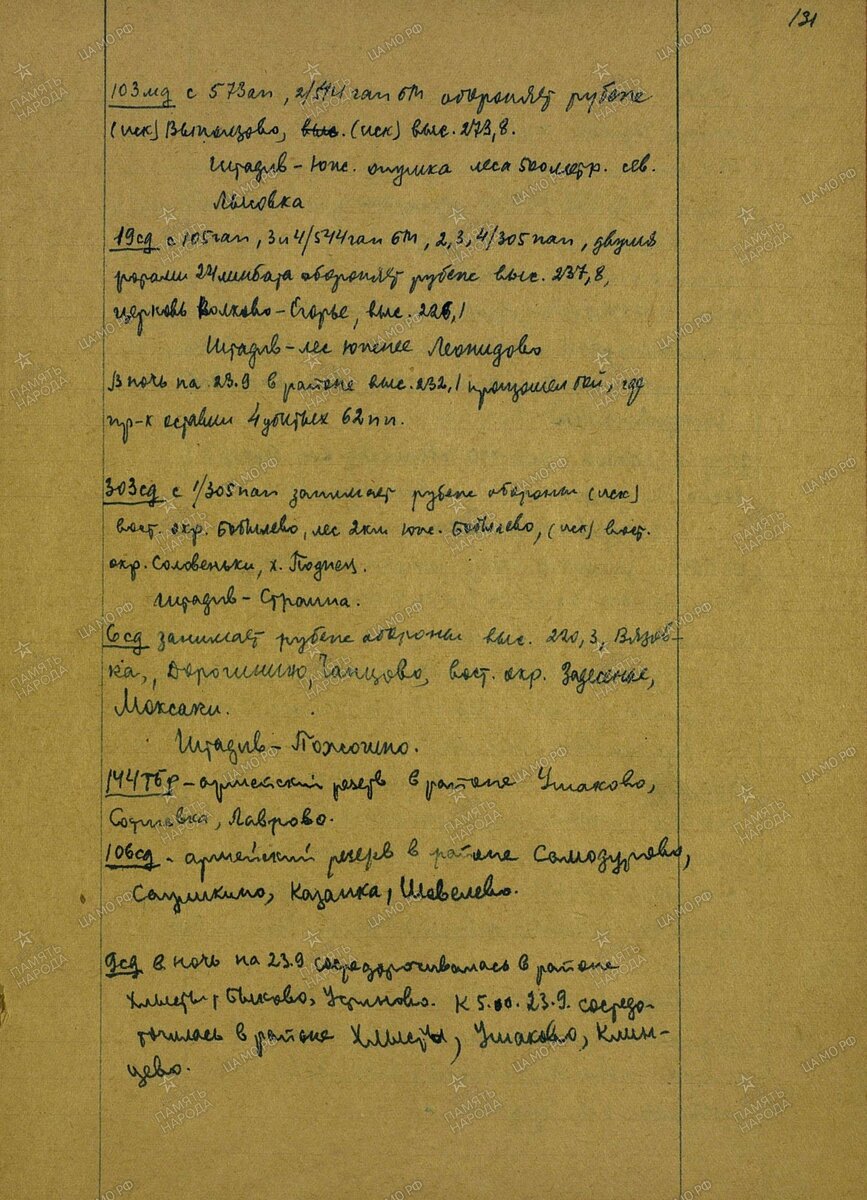 131
103мд с 573ап, 2/544 гап БМ обороняет рубеж
(иск) Выползово, (иск) выс. 273,8.
Штадив – Юж. опушка леса 500 метр. сев.
Лысовка
19сд с 105гап, 3 и 4/544 гап БМ, 2, 3, 4/305 пап, двумя
ротами 24 минбата обороняет рубеж выс. 237,8,
церковь Волково-Егорье, выс. 226,1
Штадив – лес южнее Леонидово
В ночь на 23.9 в районе выс. 232,1 произошел бой, где
пр-к оставил 4 убитых 62 пп.
303сд с 1/305 пап занимает рубеж обороны (иск)
вост. окр. Бобылево, лес 2км юж. Бобылево, (иск) вост.
окр. Соловеньки, х. Поднец.
Штадив – Страина.
6сд занимает рубеж обороны выс. 220,3, Вязов-
ка, Дорогинино, Чанцово, вост. окр. Задесенье,
Моксаки.
Штадив – Пожогино.
144тбр – армейский резерв в районе Ушаково,
Лаврово.
106сд – армейский резерв в районе
Казанка, Шевелево.
9сд в ночь на 23.9 сосредотачивалась в районе
Хлысты, Быково, Устиново. К 5.00 23.9. сосредо-
точилась в районе Хлысты, Ушаково, Клин-
цево.
ПАМЯТЬ НАРОДА
ЦАМО.РФ